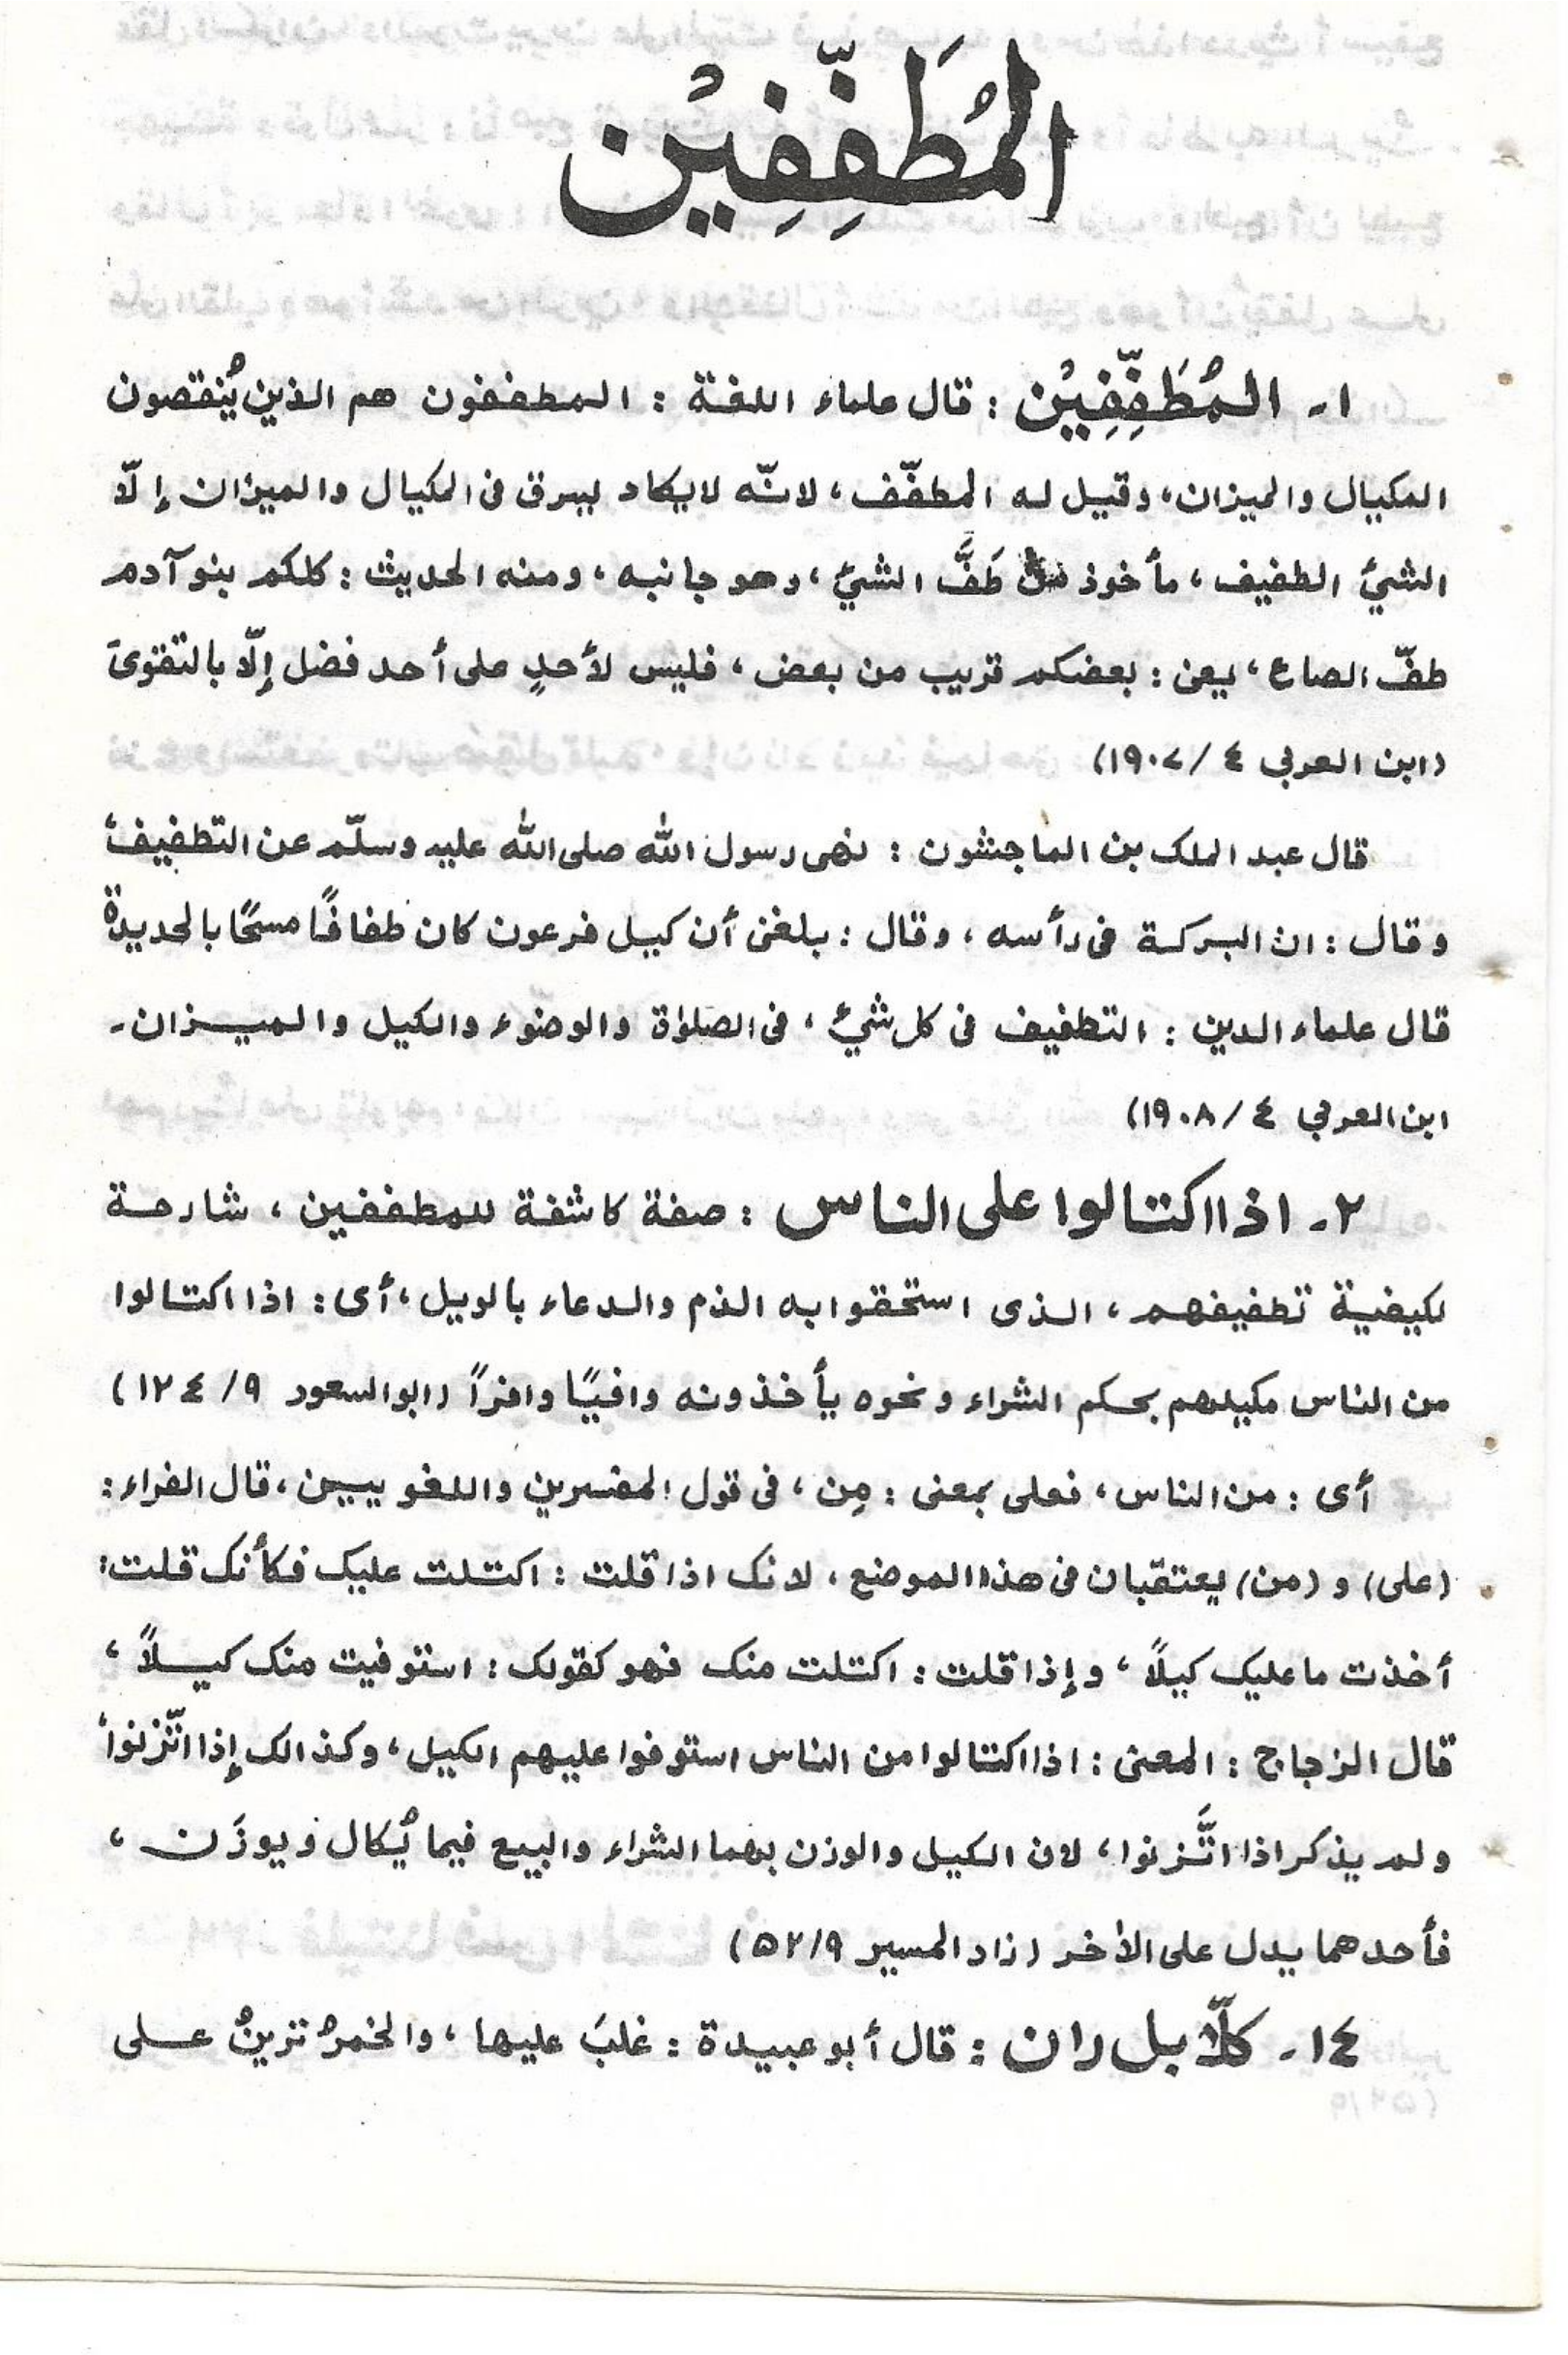 المُطَفِّفِيْن
١ـ المُطَفِّفِيْن : قال علماء اللغة : المطففون هم الذين يُنقصون
المكيال والميزان، وقيل له المطفّف، لانّه لا يكاد يسرق فى المكيال والميزان إلّا
الشيئ الطفيف، مأخوذ من طَفَّ الشيئ، وهو جانبه، ومنه الحديث : كلكم بنو آدم
طفّ الصاع، يعنى : بعضكم قريب من بعض، فليس لأحدٍ على أحد فضل إلّا بالتقوىٰ
(ابن العربي ٤/١٩٠٧)
قال عبد الملك بن الماجشون : نهى رسول الله صلى الله عليه وسلّم عن التطفيف،
وقال : ان البركة فى رأسه، وقال : بلغنى أن كيل فرعون كان طفافًا مسحًا بالحديدة
قال علماء الدين : التطفيف فى كل شيئ، فى الصلوٰة والوضوء والكيل والميزان ـ
ابن العربي ٤/١٩٠٨)
٢ـ اذا اكتالوا على الناس : صفة كاشفة للمطففين، شارحة
لكيفية تطفيفهم، الذى استحقوا به الذم والدعاء بالويل، أى : اذا اكتالوا
من الناس مكيلهم بحكم الشراء ونحوه يأخذونه وافيًا وافراً (ابوالسعود ٩/١٢٤)
أى : من الناس، فعلى بمعنى : مِن، فى قول المفسرين واللغويين، قال الفراء :
(على) و (من) يعتقبان فى هذا الموضع، لانک اذا قلت : اكتلت عليک فكأنک قلت :
أخذت ما عليک كيلاً، وإذا قلت : اكتلت منک فهو كقولک : استوفيت منک كيلاً،
قال الزجاج : المعنى : اذا اكتالوا من الناس استوفوا عليهم الكيل، وكذالک إذا اتّزنوا،
ولم يذكر اذا اتَّزنوا، لان الكيل والوزن بهما الشراء والبيع فيما يُكال ويوزَن،
فأحدهما يدل على الأخر (زاد المسير ٩/٥٢)
١٤ـ كلّا بل ران : قال أبو عبيدة : غلبَ عليها، والخمرُ ترينُ على